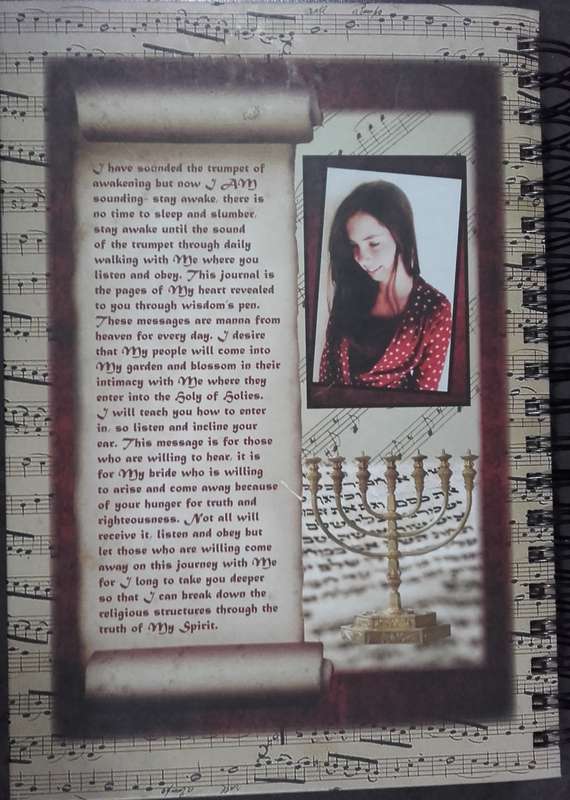 rall a tempo
I have sounded the trumpet of
awakening but now I AM
sounding- stay awake, there is
no time to sleep and slumber,
stay awake until the sound
of the trumpet through daily
walking with Me where you
listen and obey. This journal is
the pages of My heart revealed
to you through wisdom's pen.
These messages are manna from
heaven for every day. I desire
that My people will come into
My garden and blossom in their
intimacy with Me where they
enter into the Holy of Holies.
I will teach you how to enter
in, so listen and incline your
ear. This message is for those
who are willing to hear, it is
for My bride who is willing
to arise and come away because
of your hunger for truth and
righteousness. Not all will
receive it, listen and obey but
let those who are willing come
away on this journey with Me
for I long to take you deeper
so that I can break down the
religious structures through the
truth of My Spirit.